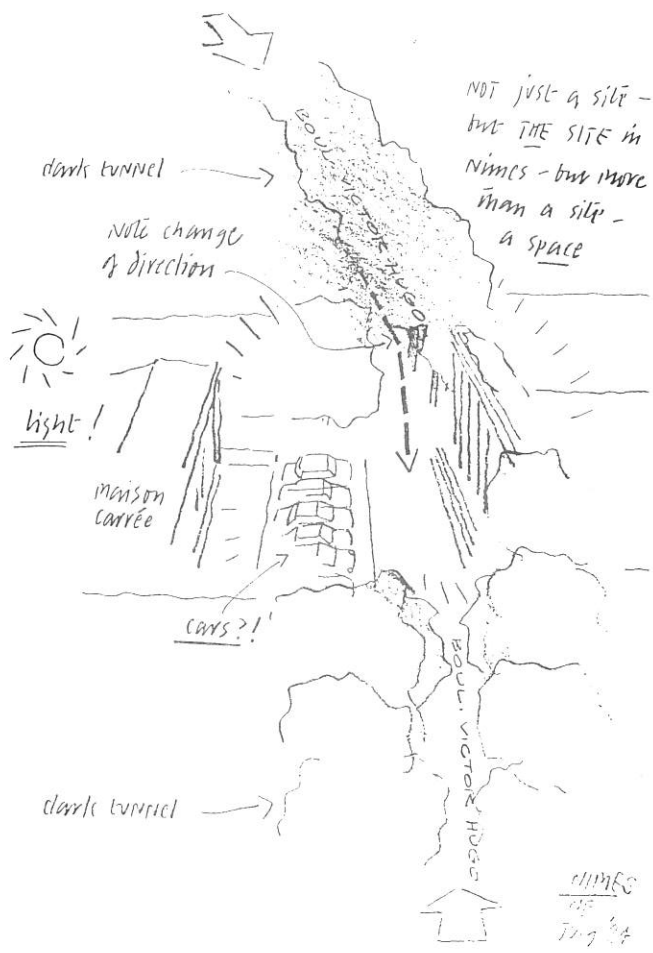 NOT just a site –
but THE SITE in
Nimes – but more
than a site –
a space
BOUL. VICTOR HUGO
dark tunnel
Note change
of direction
light!
maison
carrée
cars?!
BOUL. VICTOR HUGO
dark tunnel
NIMES